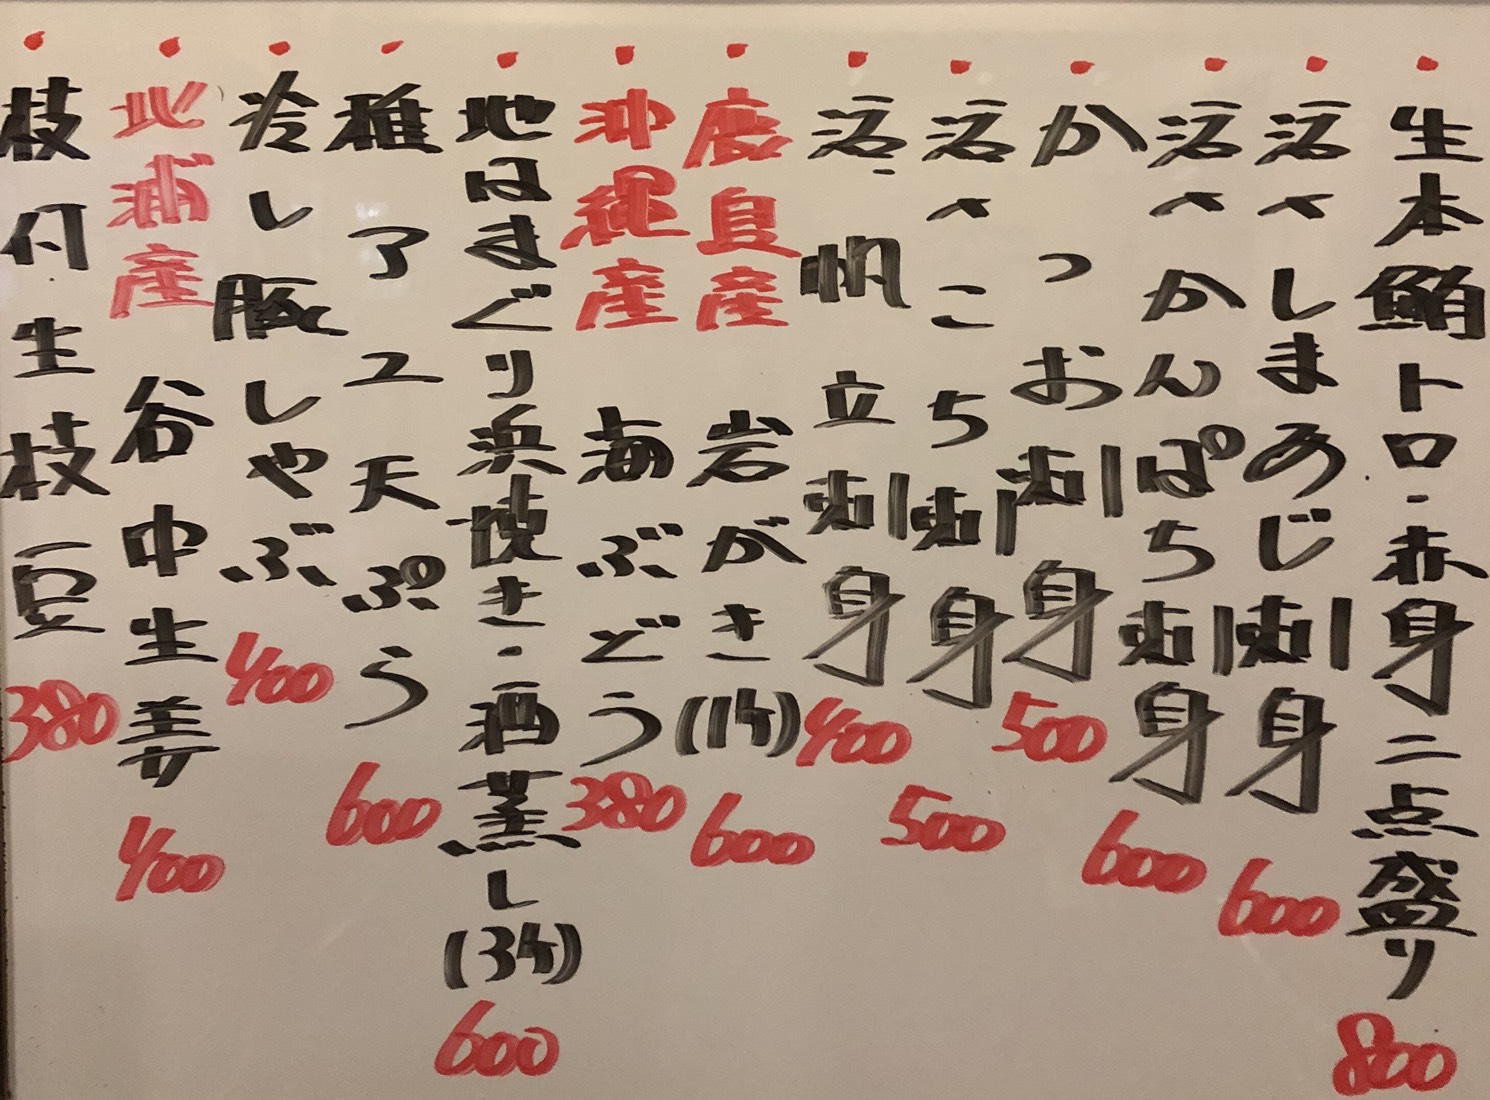 生本鮪トロ・赤身二点盛り 800
活〆しまあじ刺身 600
活〆かんぱち刺身 600
かつお刺身 500
活〆こち刺身 500
活・帆立刺身 400
鹿島産 岩がき(1ヶ) 600
沖縄産 海ぶどう 380
地はまぐり浜焼き・酒蒸し(3ヶ) 600
稚アユ天ぷら 600
冷し豚しゃぶ 400
地浦産 谷中生姜 400
枝付生枝豆 380